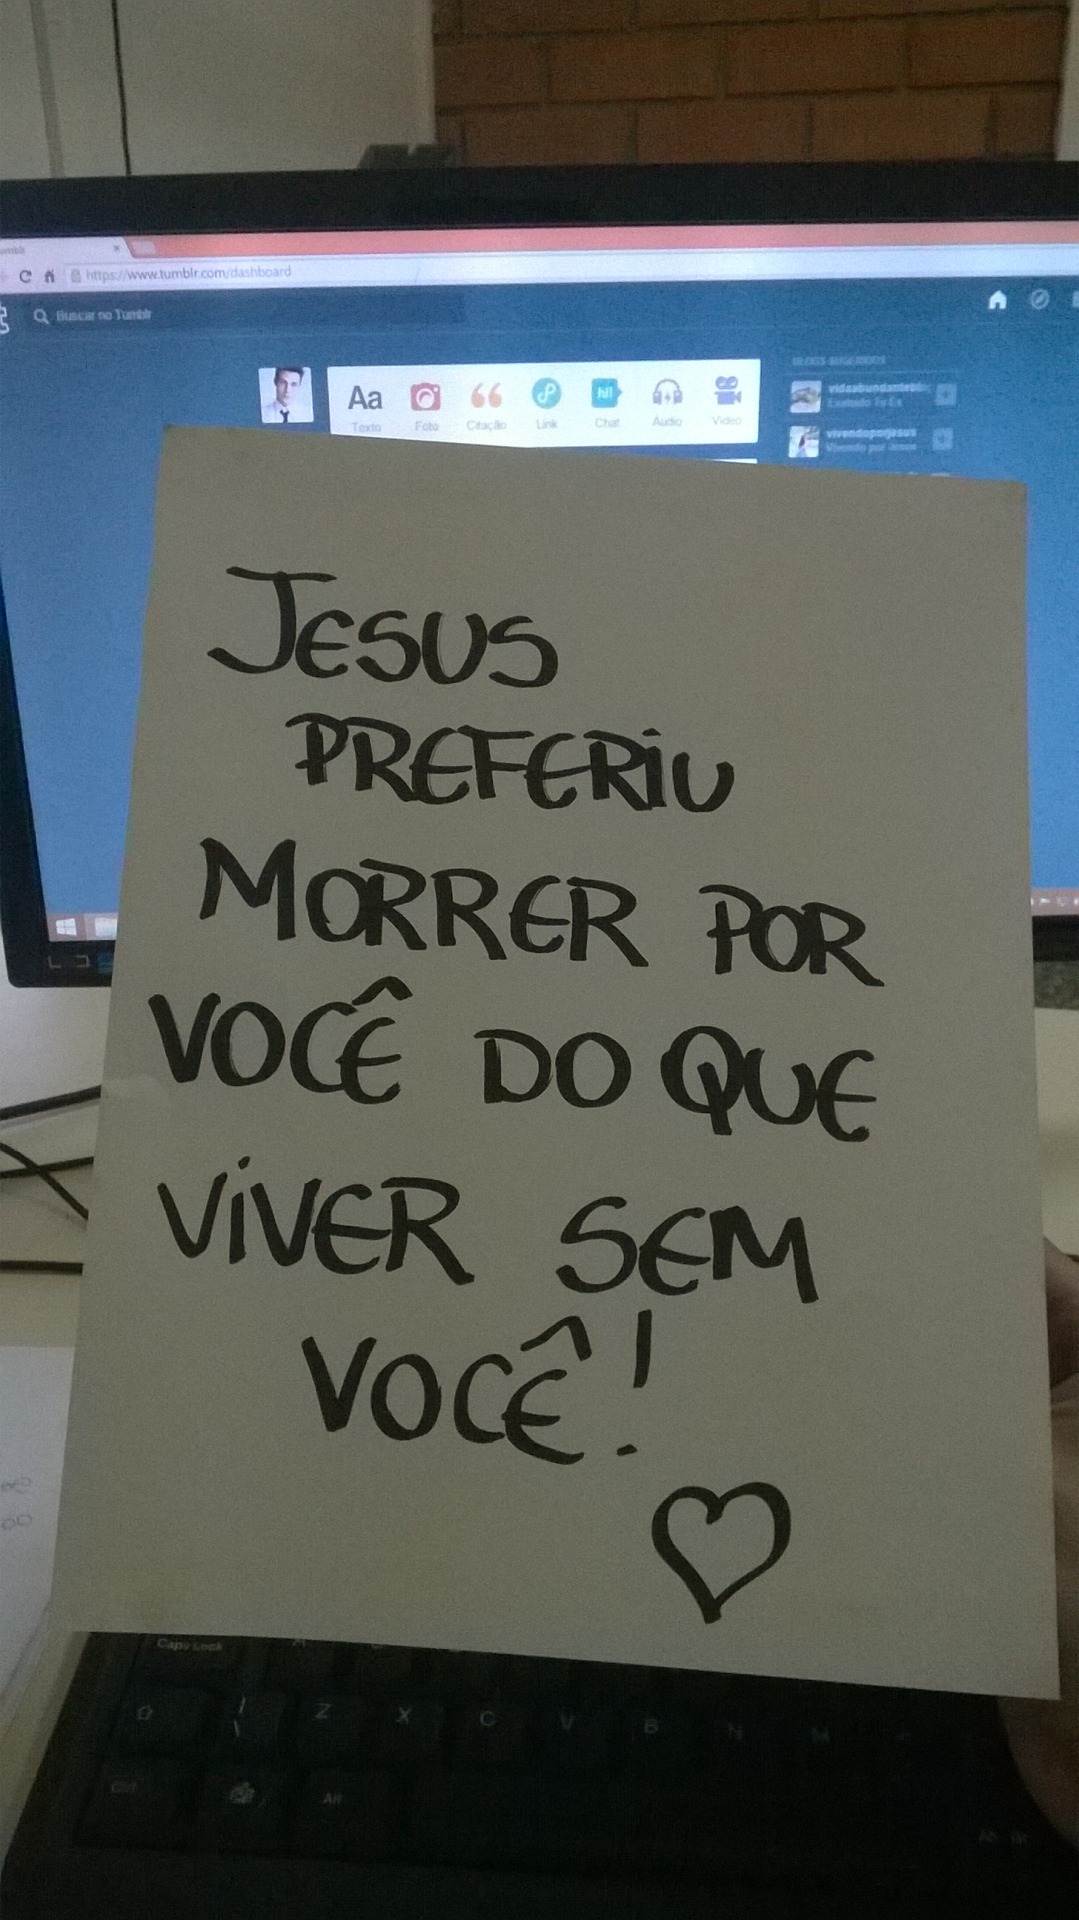 https://www.tumblr.com/dashboard
Buscar no Tumblr
BLOGS SUGERIDOS
Aa
hi!
Texto
Foto
Citação
Link
Chat
Áudio
Vídeo
vivendoporjesus
Vivendo por Jesus
JESUS
PREFERiU
MORRER POR
VOCÊ DO QUE
ViVER SEM
VOCÊ!
Caps Lock
Z X C V B N M
Ctrl
Alt